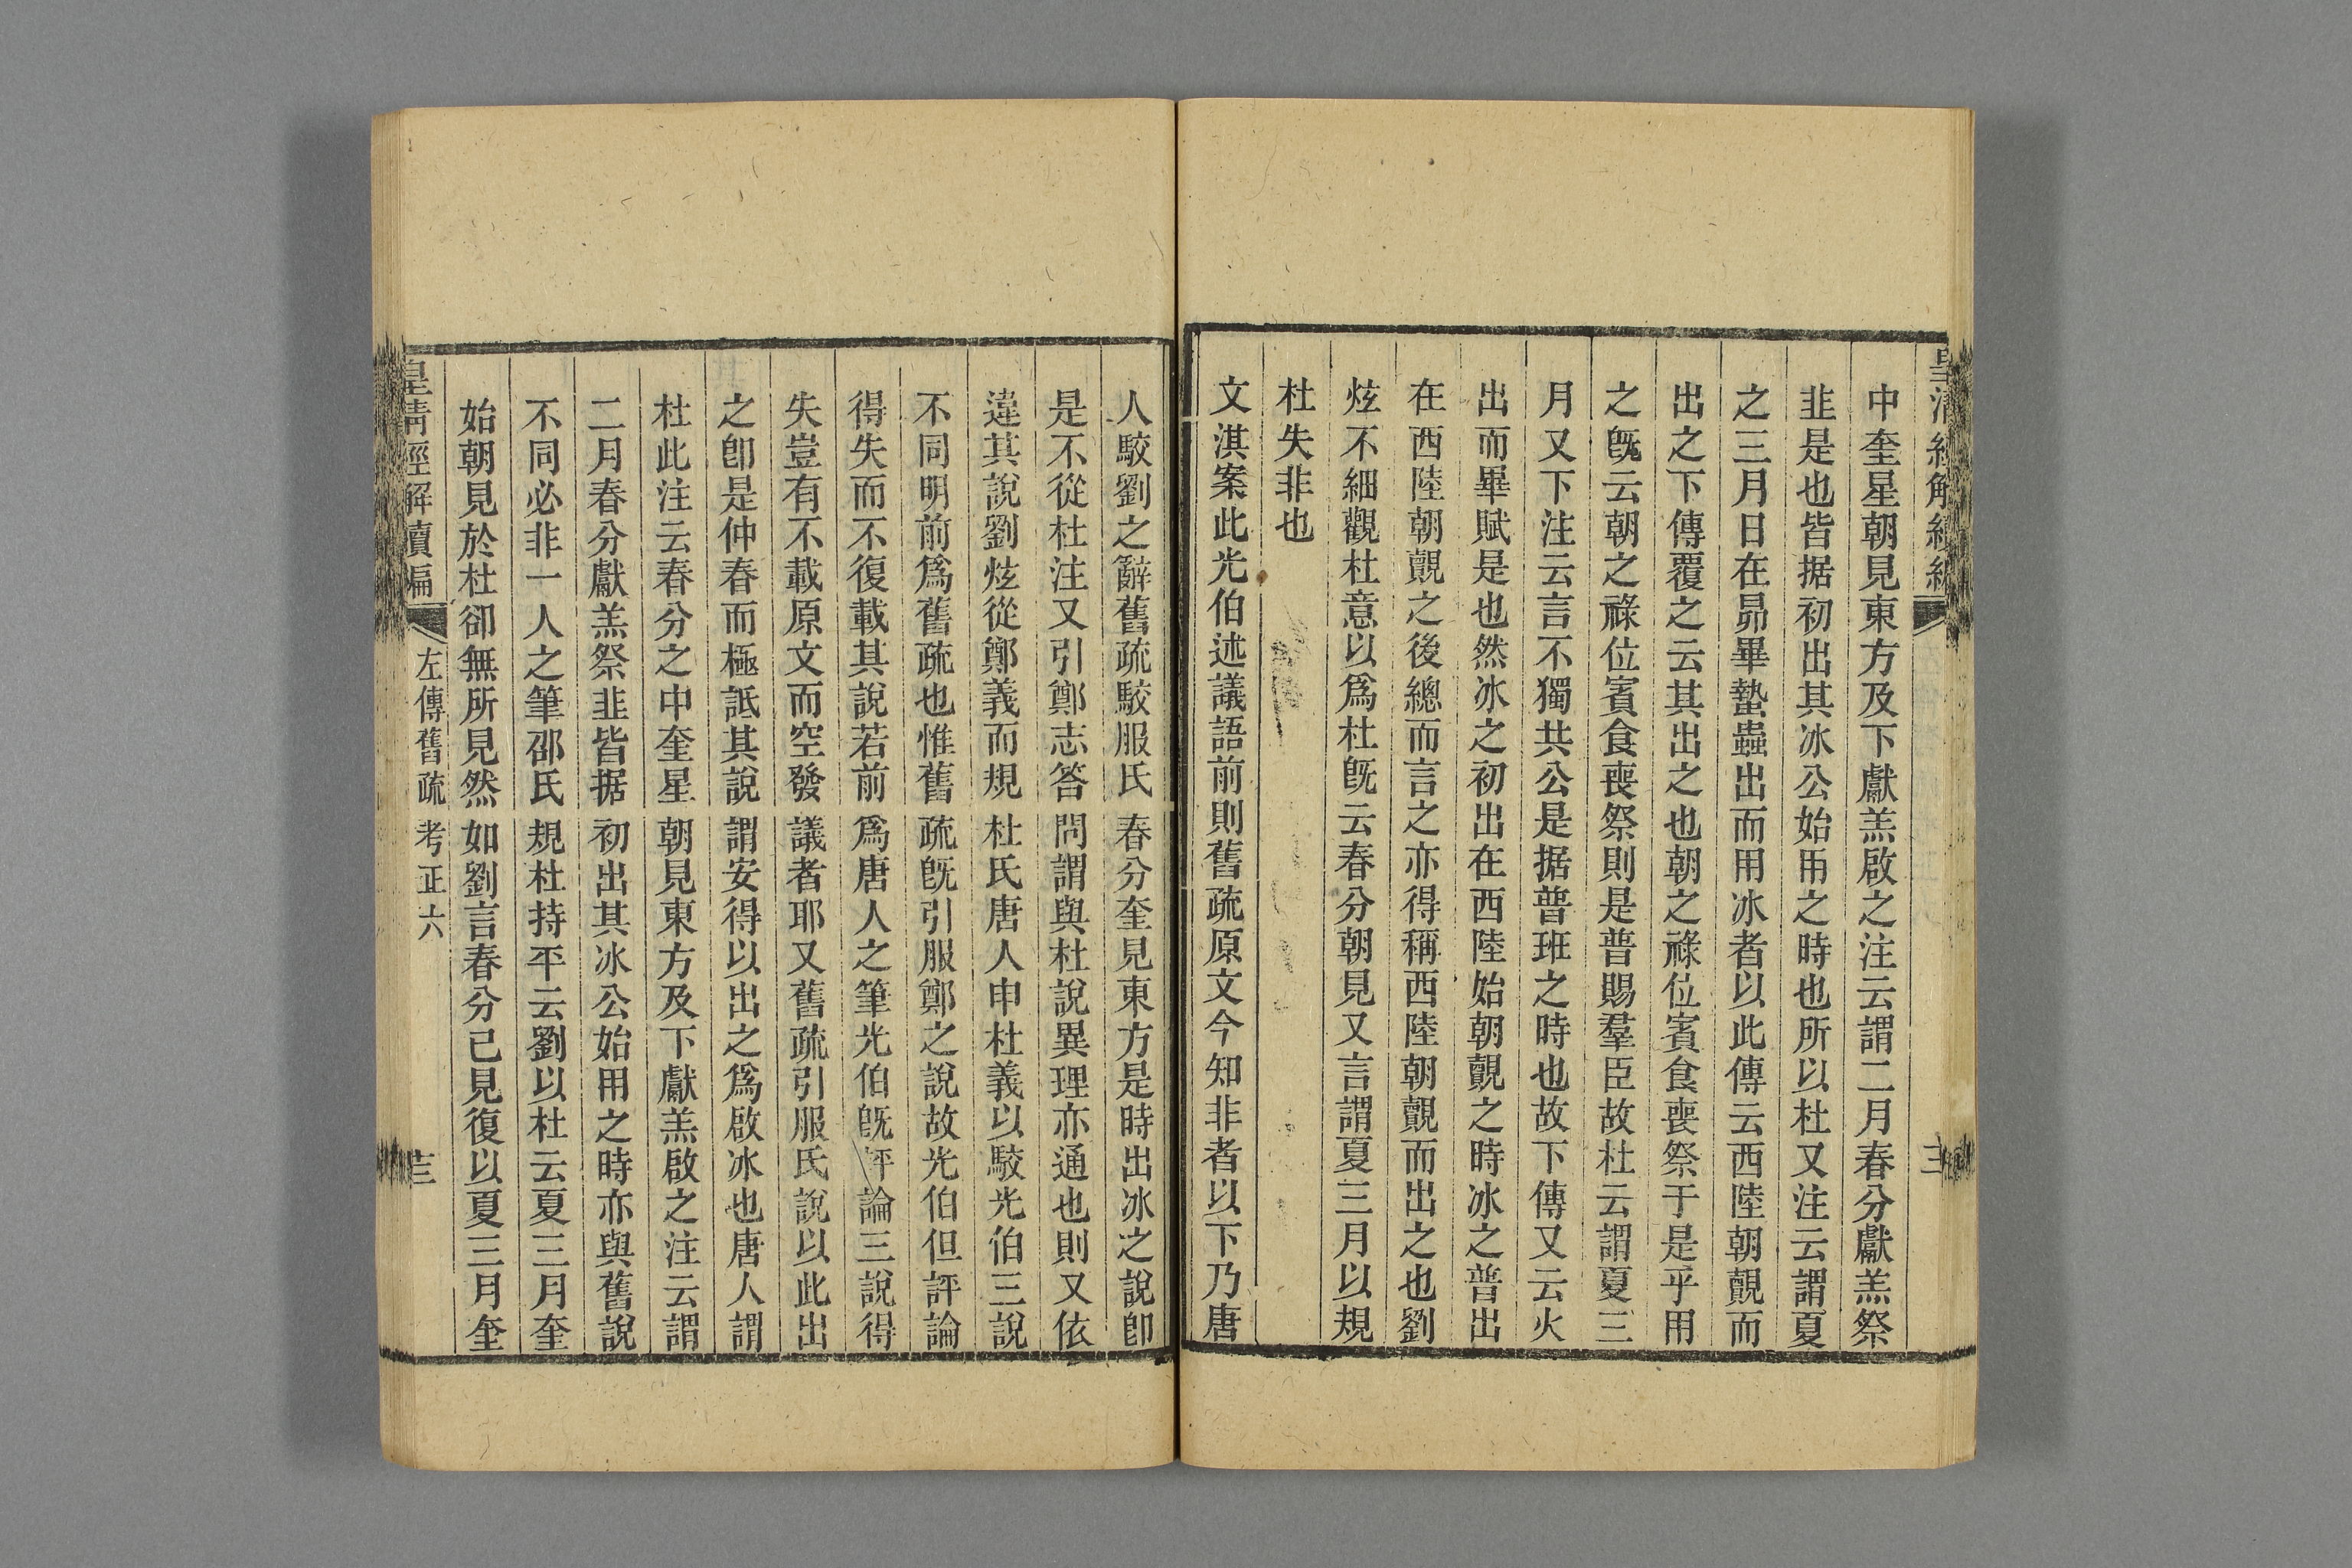 中奎星朝見東方及下獻羔啟之注云謂二月春分獻羔祭
韭是也皆据初出其冰公始用之時也所以杜又注云謂夏
之三月日在昴畢蟄蟲出而用冰者以此傳云西陸朝覿而
出之下傳覆之云其出之也朝之祿位賓食喪祭于是乎用
之旣云朝之祿位賓食喪祭則是普賜羣臣故杜云謂夏三
月又下注云言不獨共公是据普班之時也故下傳又云火
出而畢賦是也然冰之初出在西陸始朝覿之時冰之普出
在西陸朝覿之後總而言之亦得稱西陸朝覿而出之也劉
炫不細觀杜意以爲杜旣云春分朝見又言謂夏三月以規
杜失非也
文淇案此光伯述議語前則舊疏原文今知非者以下乃唐
人駮劉之辭舊疏駮服氏春分奎見東方是時出冰之說卽
是不從杜注又引鄭志答問謂與杜說異理亦通也則又依
違其說劉炫從鄭義而規杜氏唐人申杜義以駮光伯三說
不同明前爲舊疏也惟舊疏旣引服鄭之說故光伯但評論
得失而不復載其說若前爲唐人之筆光伯旣評論三說得
失豈有不載原文而空發議者耶又舊疏引服氏說以此出
之卽是仲春而極詆其說謂安得以出之爲啟冰也唐人謂
杜此注云春分之中奎星朝見東方及下獻羔啟之注云謂
二月春分獻羔祭韭皆据初出其冰公始用之時亦與舊說
不同必非一人之筆邵氏規杜持平云劉以杜云夏三月奎
始朝見於杜卻無所見然如劉言春分已見復以夏三月奎
皇清經解續編 左傳舊疏考正六